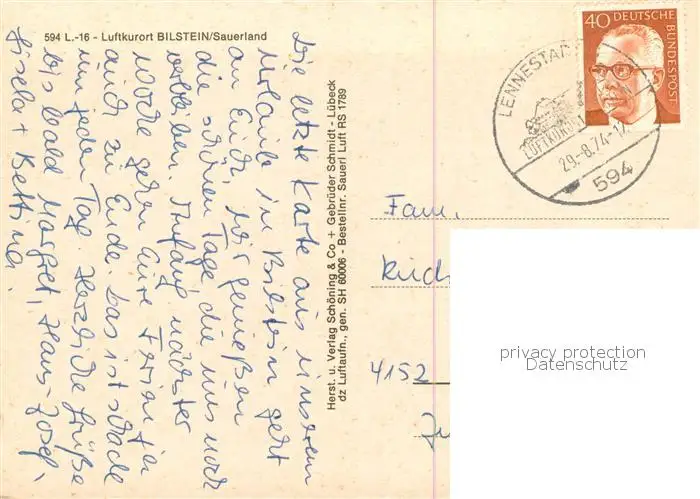 594 L.-16 - Luftkurort BILSTEIN/Sauerland
Die letzte Karte aus unserem
Urlaub in Bilstein geht
an Euch. Wir genießen
die schönen Tage, die uns noch
verbleiben. Anfang nächster
Woche gehen Eure Ferien ja
auch zu Ende. Das ist schade
um jeden Tag. Herzliche Grüße
bis bald Margret, Hans-Josef,
Gisela + Bettina.
Herst. u. Verlag Schöning & Co + Gebrüder Schmidt - Lübeck
dz Luftaufn., gen. SH 60006 - Bestellnr. Sauerl Luft RS 1789
40 DEUTSCHE
BUNDESPOST
LENNESTADT
LUFTKURORT
29.-8.74-12
594
Fam.
Kirch
4152
privacy protection
Datenschutz